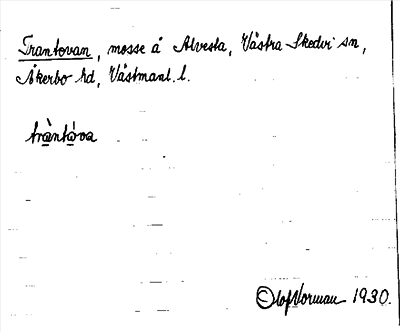 Trantovan, mosse å Alvesta, Västra Skedvi sn,
Åkerbo hd, Västmanl. l.
tràntå̀va
Olof Norman 1930.